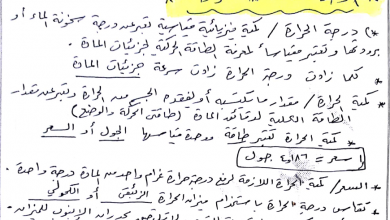 *) درجة الحرارة / كمية فيزيائية مقياسية تعبر عن درجة سخونة الماء أو
برودتها وتعتبر مقياساً لمعرفة الطاقة الحركية لجزيئات المادة
كلما زادت درجة الحرارة زادت سرعة جزيئات المادة
كمية الحرارة / مقدار ما تكتسبه أو تفقده الجسم من الحرارة وتعبر عن مقدار
الطاقة الكلية لدقائق المادة (طاقتي الحركة والوضع)
كمية الحرارة تعتبر طاقة وحدة قياسها الجول أو السعر
١ سعر = ٤٫١٨٦ جول
السعر / كمية الحرارة اللازمة لرفع درجة حرارة غرام واحد من المادة درجة واحدة.
تقاس درجة الحرارة باستخدام ميزان الحرارة الزئبقي أو الكحولي